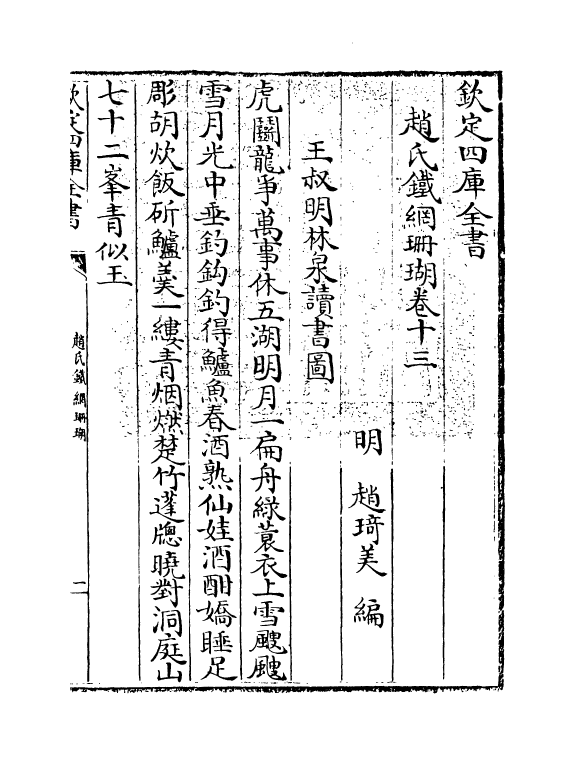 欽定四庫全書
趙氏鐵網珊瑚卷十三
明 趙琦美 編
王叔明林泉讀書圖
虎鬭龍爭萬事休五湖明月一扁舟緑蓑衣上雪颼颼
雪月光中垂釣鈎釣得鱸魚春酒熟仙娃酒酣嬌睡足
彫胡炊飯斫鱸羮一縷青烟燃楚竹蓬牕曉對洞庭山
七十二峯青似玉
欽定四庫全書
趙氏鐵網珊瑚